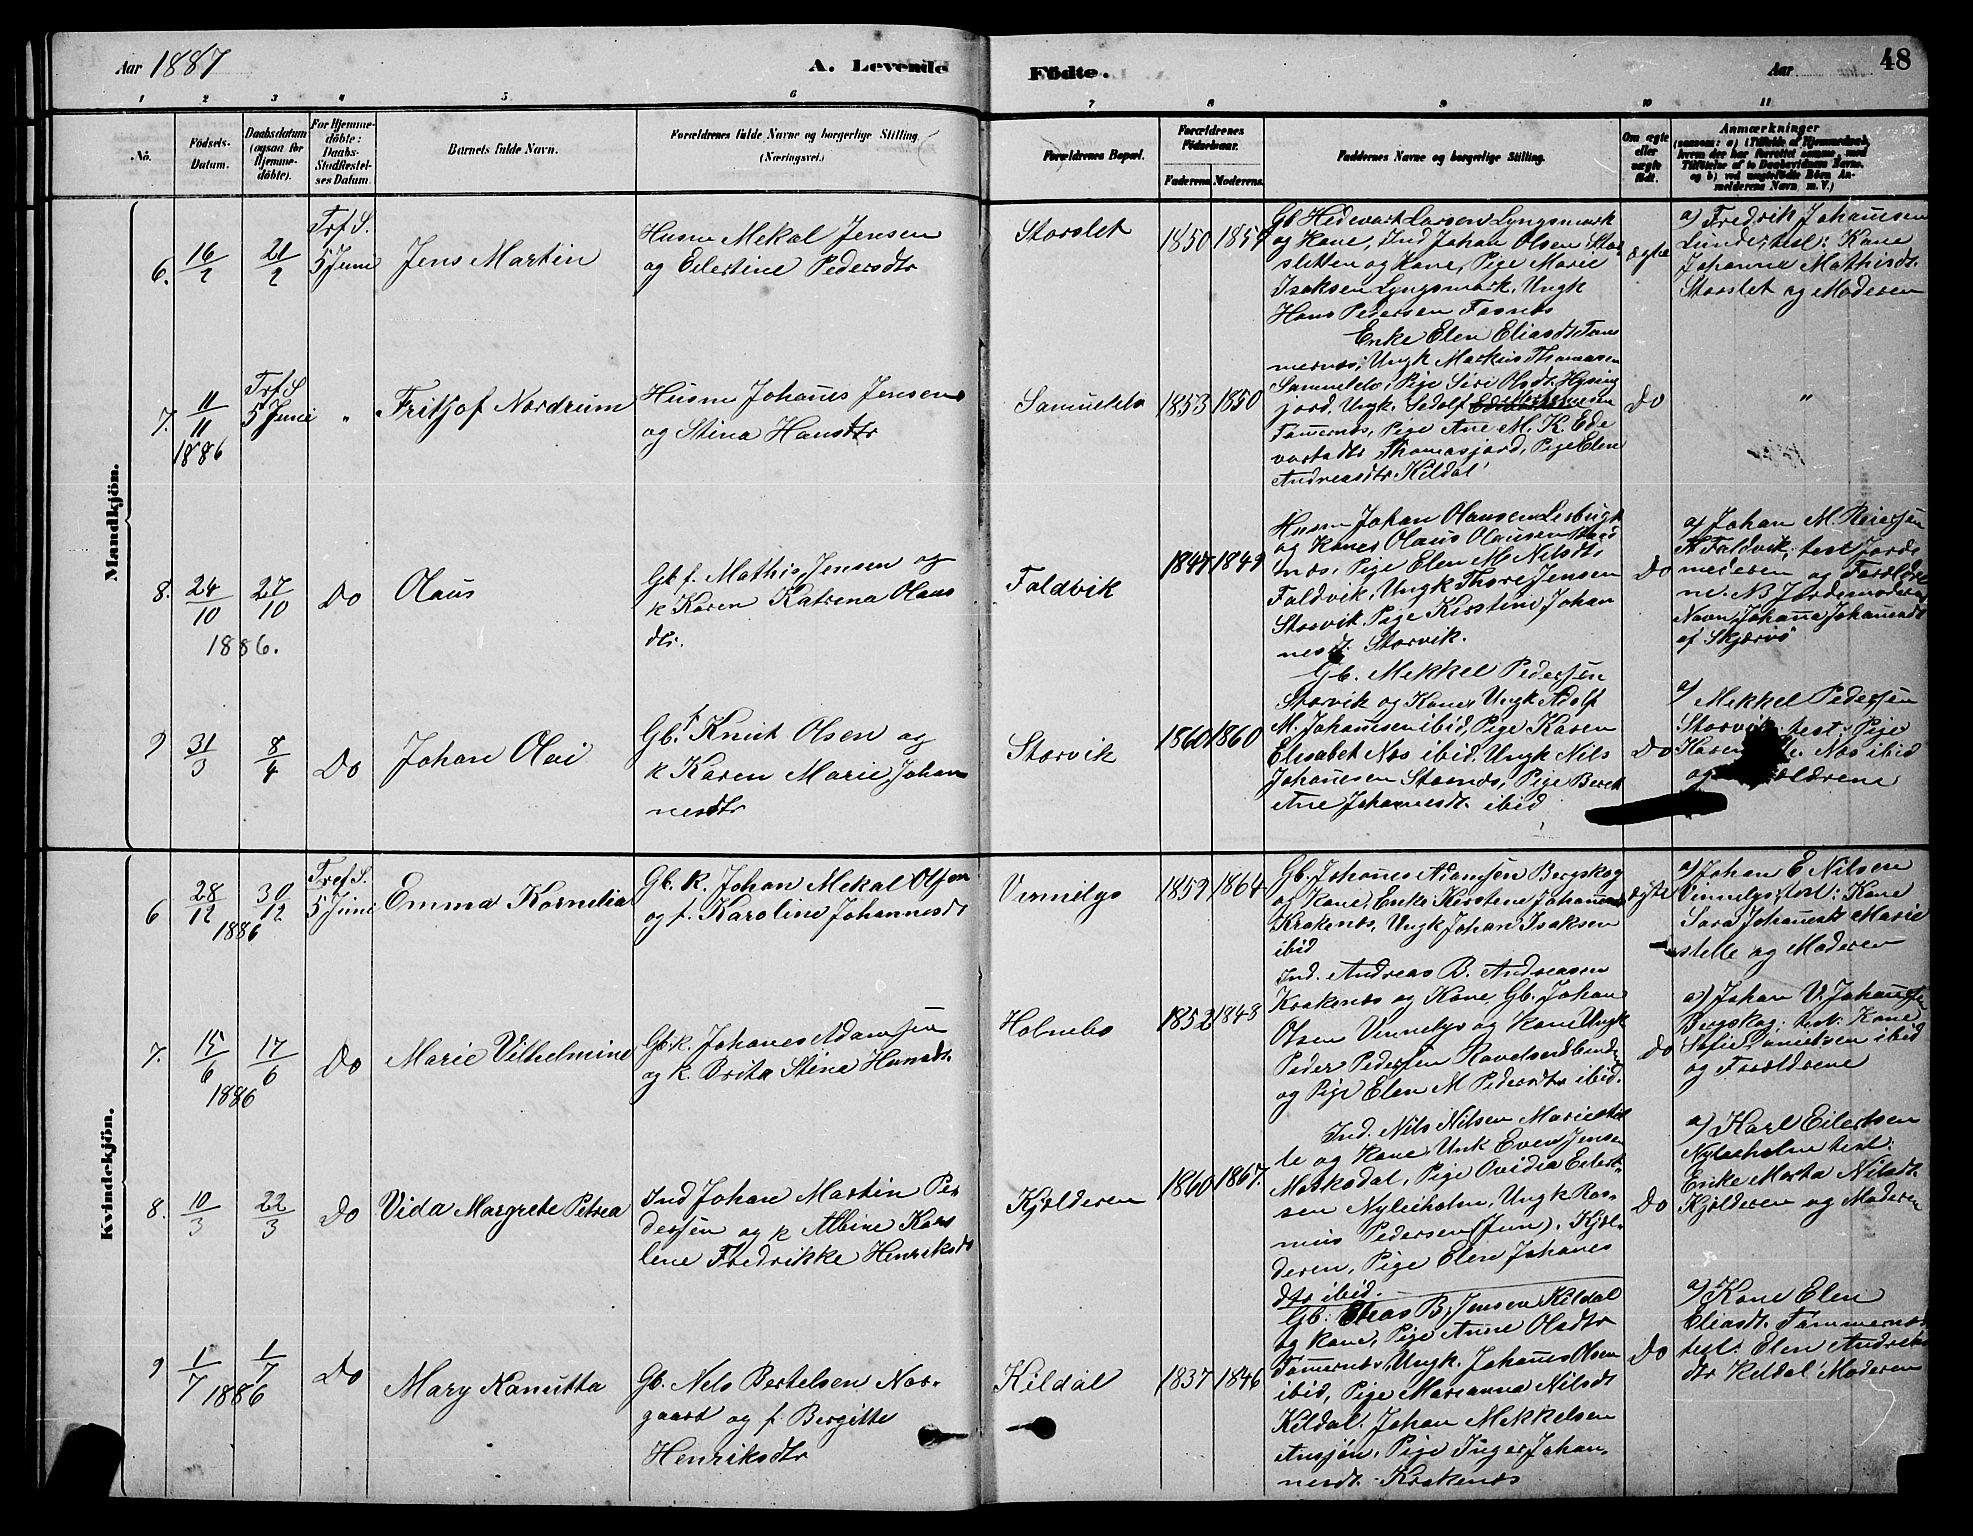 Aar 1887
A. Levende
Födte.
Aar
48
1 2 3 4 5 6 7 8 9 10 11
No.
Födsels-
Datum.
Daabsdatum
(ogsaa for
Hjemme-
döbte).
For Hjemme-
döbte:
Daabs-
Stadfæstel-
ses Datum.
Barnets fulde Navn.
Forældrenes fulde Navne og borgerlige Stilling
(Næringsvei.)
Forældrenes Bopæl.
Forældrenes
Födselsaar.
Faderens. Moderens.
Faddernes Navne og borgerlige Stilling.
Om ægte
eller
uægte
födt.
Anmærkninger
Mandkjön.
6. 16/2
21/2
Trf. S.
5 Juni
Jens Martin
Husm Mekal Jensen
og Eilertine Pedersdtr
Storslet
1850 1859
Gb Hedevart Larsen Lyngsmark
og Kone, Ind Johan Olsen Stor
sletten og Kone, Pige Marie
Isaksen Lyngsmark, Ungk
Hans Pedersen
ægte
a) Fredrik Johannesen
test: Kone
Johanna Mathisdt.
Storslet og Moderen
7. 11/11
1886
Trf. S
5 Juni
"
Fritjof Nordrum
Husm Johanes Jensen
og Stina Hansdtr
Samuelelv
1853 1850
Enke Elen Eliasdt
Ungk Markus Thomasen
Samuelelv, Pige Siri Olsdt.
jord, Ungk.
Pige Ane M. K. Ede
vartsdtr Thomasjord, Pige Elen
Andreasdtr Kildal
Do
"
8. 24/10
27/10
1886.
Do
Olaus
Gb. f. Mathis Jensen og
k Karen Katrena Olaus
dtr.
Faldvik
1847 1849
Husm Johan Olausen
og Kone, Olaus Olausen
næs, Pige Elen M Nilsdt
Faldvik, Ungk Thore Jensen
Storvik Pige Kirstine Johan
nesdt Storvik.
Do
a) Johan M. Reiersen
Faldvik, test Jorde
moderen og Forældre
ne. NB Jordemoderens
Navn, Johanna Johannesdt
af Skjærvö
9 31/3
8/4
Do
Johan Olai
Gb. f Knut Olsen og
k Karen Marie Johan
nesdtr
Storvik
1860 1860
Gb. Mekkel Pedersen
Storvik og Kone, Ungk Adolf
M. Johannesen ibid, Pige Karen
Elisabet Nos ibid, Ungk Nils
Johannesen Pige Beret
Ane Johannesdt. ibid
Do
a) Mekkel Pedersen
Storvik test: Pige
Karen Nos ibid
og Forældrene
Kvindekjön.
6 28/12
30/12
1886
Tref S.
5 Juni
Emma Kornelia
Gb. k. Johan Mekal Olsen
og f. Karoline Johannesdt
Vinnelys
1859 1864
Gb. Johanes Adamsen Bergskog
og Kone, Enke Kirstene Johannes
Krakenæs, Ungk Johan Isaksen
ibid
ægte
a) Johan E Nilsen
Vinnelys, test: Kone
Sara Johannesdt Marie
stelle og Moderen
7. 15/6
17/6
1886
Do
Marie Vilhelmine
Gb. k. Johanes Adamsen
og k. Brita Stina Hansdt.
Holmebo
1852 1848
Ind. Andreas B. Andreasen
Krakenæs og Kone, Gb. Johan
Olsen Vinnelys og Kone Ungk
Peder Pedersen
og Pige Elen M Pedersdtr ibid.
Do
a) Johan V. Johannesen
Bergskog; test. Kone
Sofie ibid
og Forældrene
8. 10/3
22/3
Do
Vida Margrete Petrea
Ind Johan Martin Pe-
dersen og k Albine Karo
lene Fredrikke Henriksdt
Kjölderen
1860 1867
Ind. Nils Nilsen Mariestel
le og Kone Unk Even Jensen
Maskedal, Pige Ovidia Eilert-
sen Nyleiholm, Ungk Ras-
mus Pedersen (Jun). Kjöl-
deren, Pige Elen Johanes
dtr ibid.
Do
a) Karl Eilertsen
Nyleiholm test.
Enke Marta Nilsdt
Kjölderen og Moderen
9 1/7
1/7
1886
Do
Mary Kanutta
Gb. Nils Bertelsen Nor-
gaard og f. Bergitte
Henriksdtr
Kildal
1837 1846
Gb. Elias B. Jensen Kildal
og Kone, Pige Anne Olsdtr
Ungk. Johanes Olsen
ibid, Pige Marianna Nilsdt
Kildal. Johan Mekkelsen
Pige Inger Johan
nesdt. Krakenæs
Do
a) Kone Elen
Eliasdt.
test. Elen Andreas
dtr Kildal Moderen